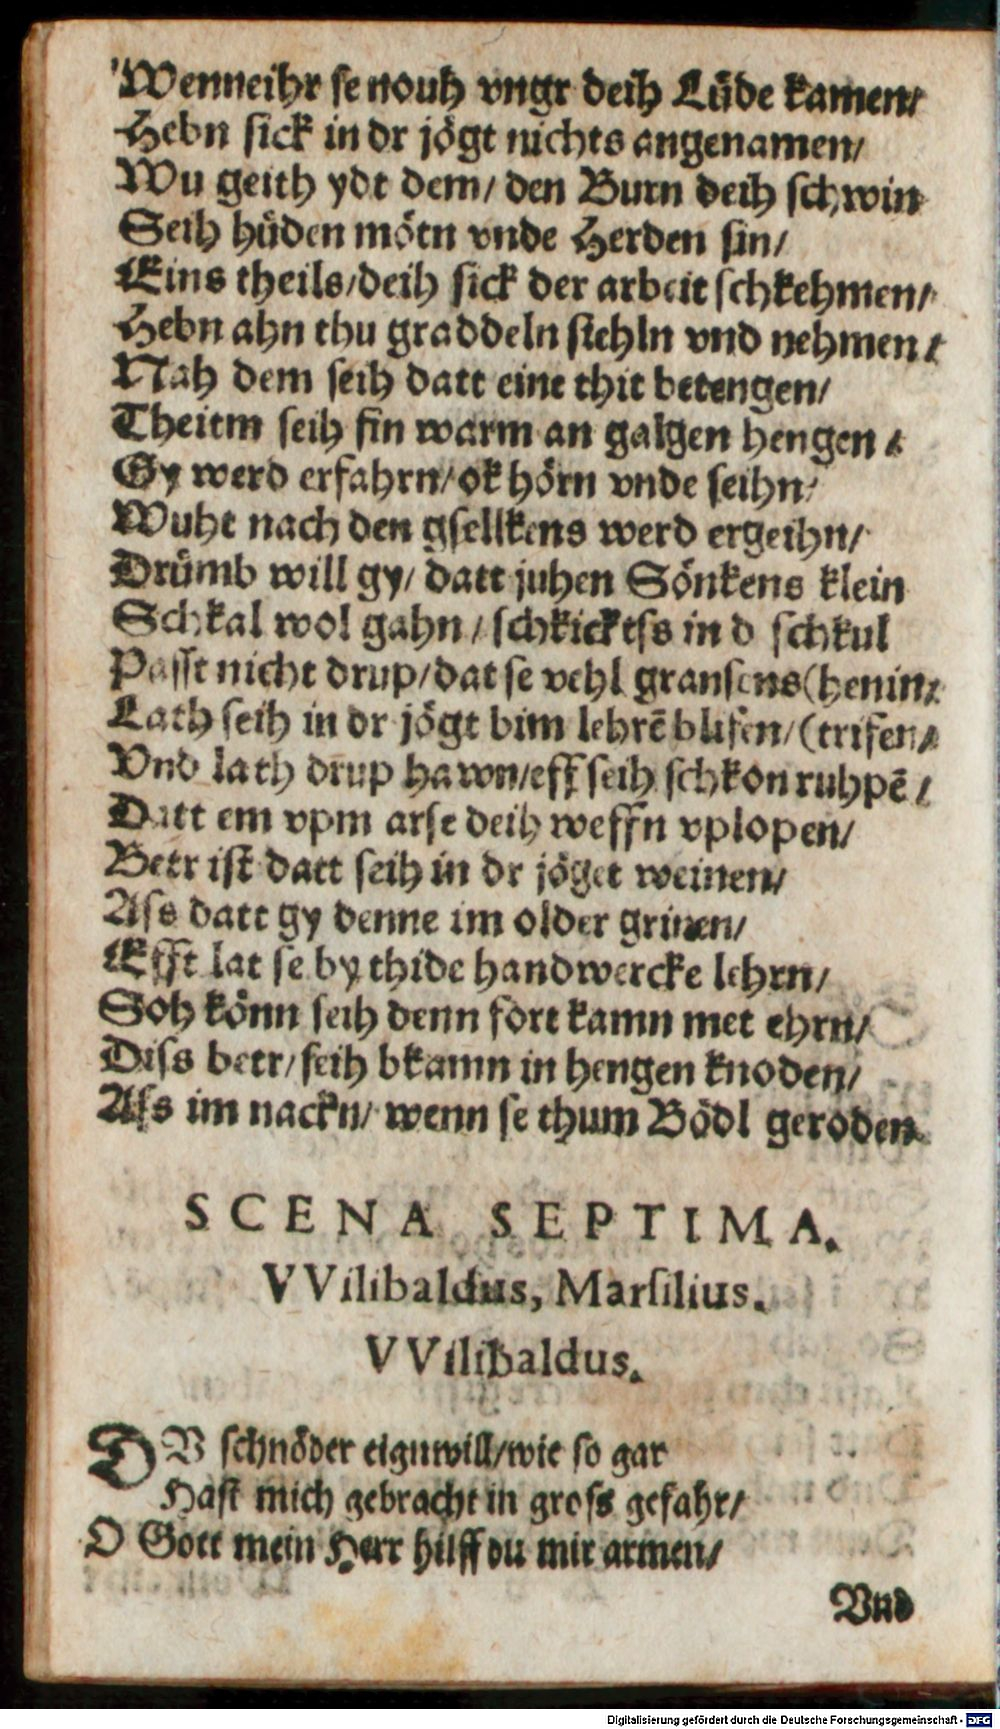 Wenneihr se nouh vngr deih Lüde kamen/
Hebn sick in dr jögt nichts angenamen/
Wu geith ydt dem/ den Burn deih schwin
Seih hüden mötn vnde Herden sin/
Eins theils/deih sick der arbeit schkehmen/
Hebn ahn thu graddeln stehln vnd nehmen/
Nah dem seih datt eine thit betengen/
Theitm seih fin warm an galgen hengen/
Gy werd erfahrn/ok hörn vnde seihn/
Wuht nach den gsellkens werd ergeihn/
Drümb will gy/ datt juhen Sönkens klein
Schkal wol gahn/ schkicktss in d schkul
Passt nicht drup/dat se vehl gransens (henin/
Lath seih in dr jögt bim lehrē blifen/ (trifen/
Vnd lath drup hawn/eff seih schkon ruhpē/
Datt em vpm arse deih weffn vplopen/
Betr ist datt seih in dr jöget weinen/
Ass datt gy denne im older grinen/
Efft lat se by thide handwercke lehrn/
Soh könn seih denn fort kamn met ehrn/
Diss betr/ seih bkamn in hengen knoden/
Ass im nackn/ wenn se thum Bödl geroden
SCENA SEPTIMA.
VVilibaldus, Marsilius.
VVilibaldus.
DV schnöder eignwill/wie so gar
Hast mich gebracht in gross gefahr/
O Gott mein Herr hilff du mir armen/
Vnd
Digitalisierung gefördert durch die Deutsche Forschungsgemeinschaft - DFG